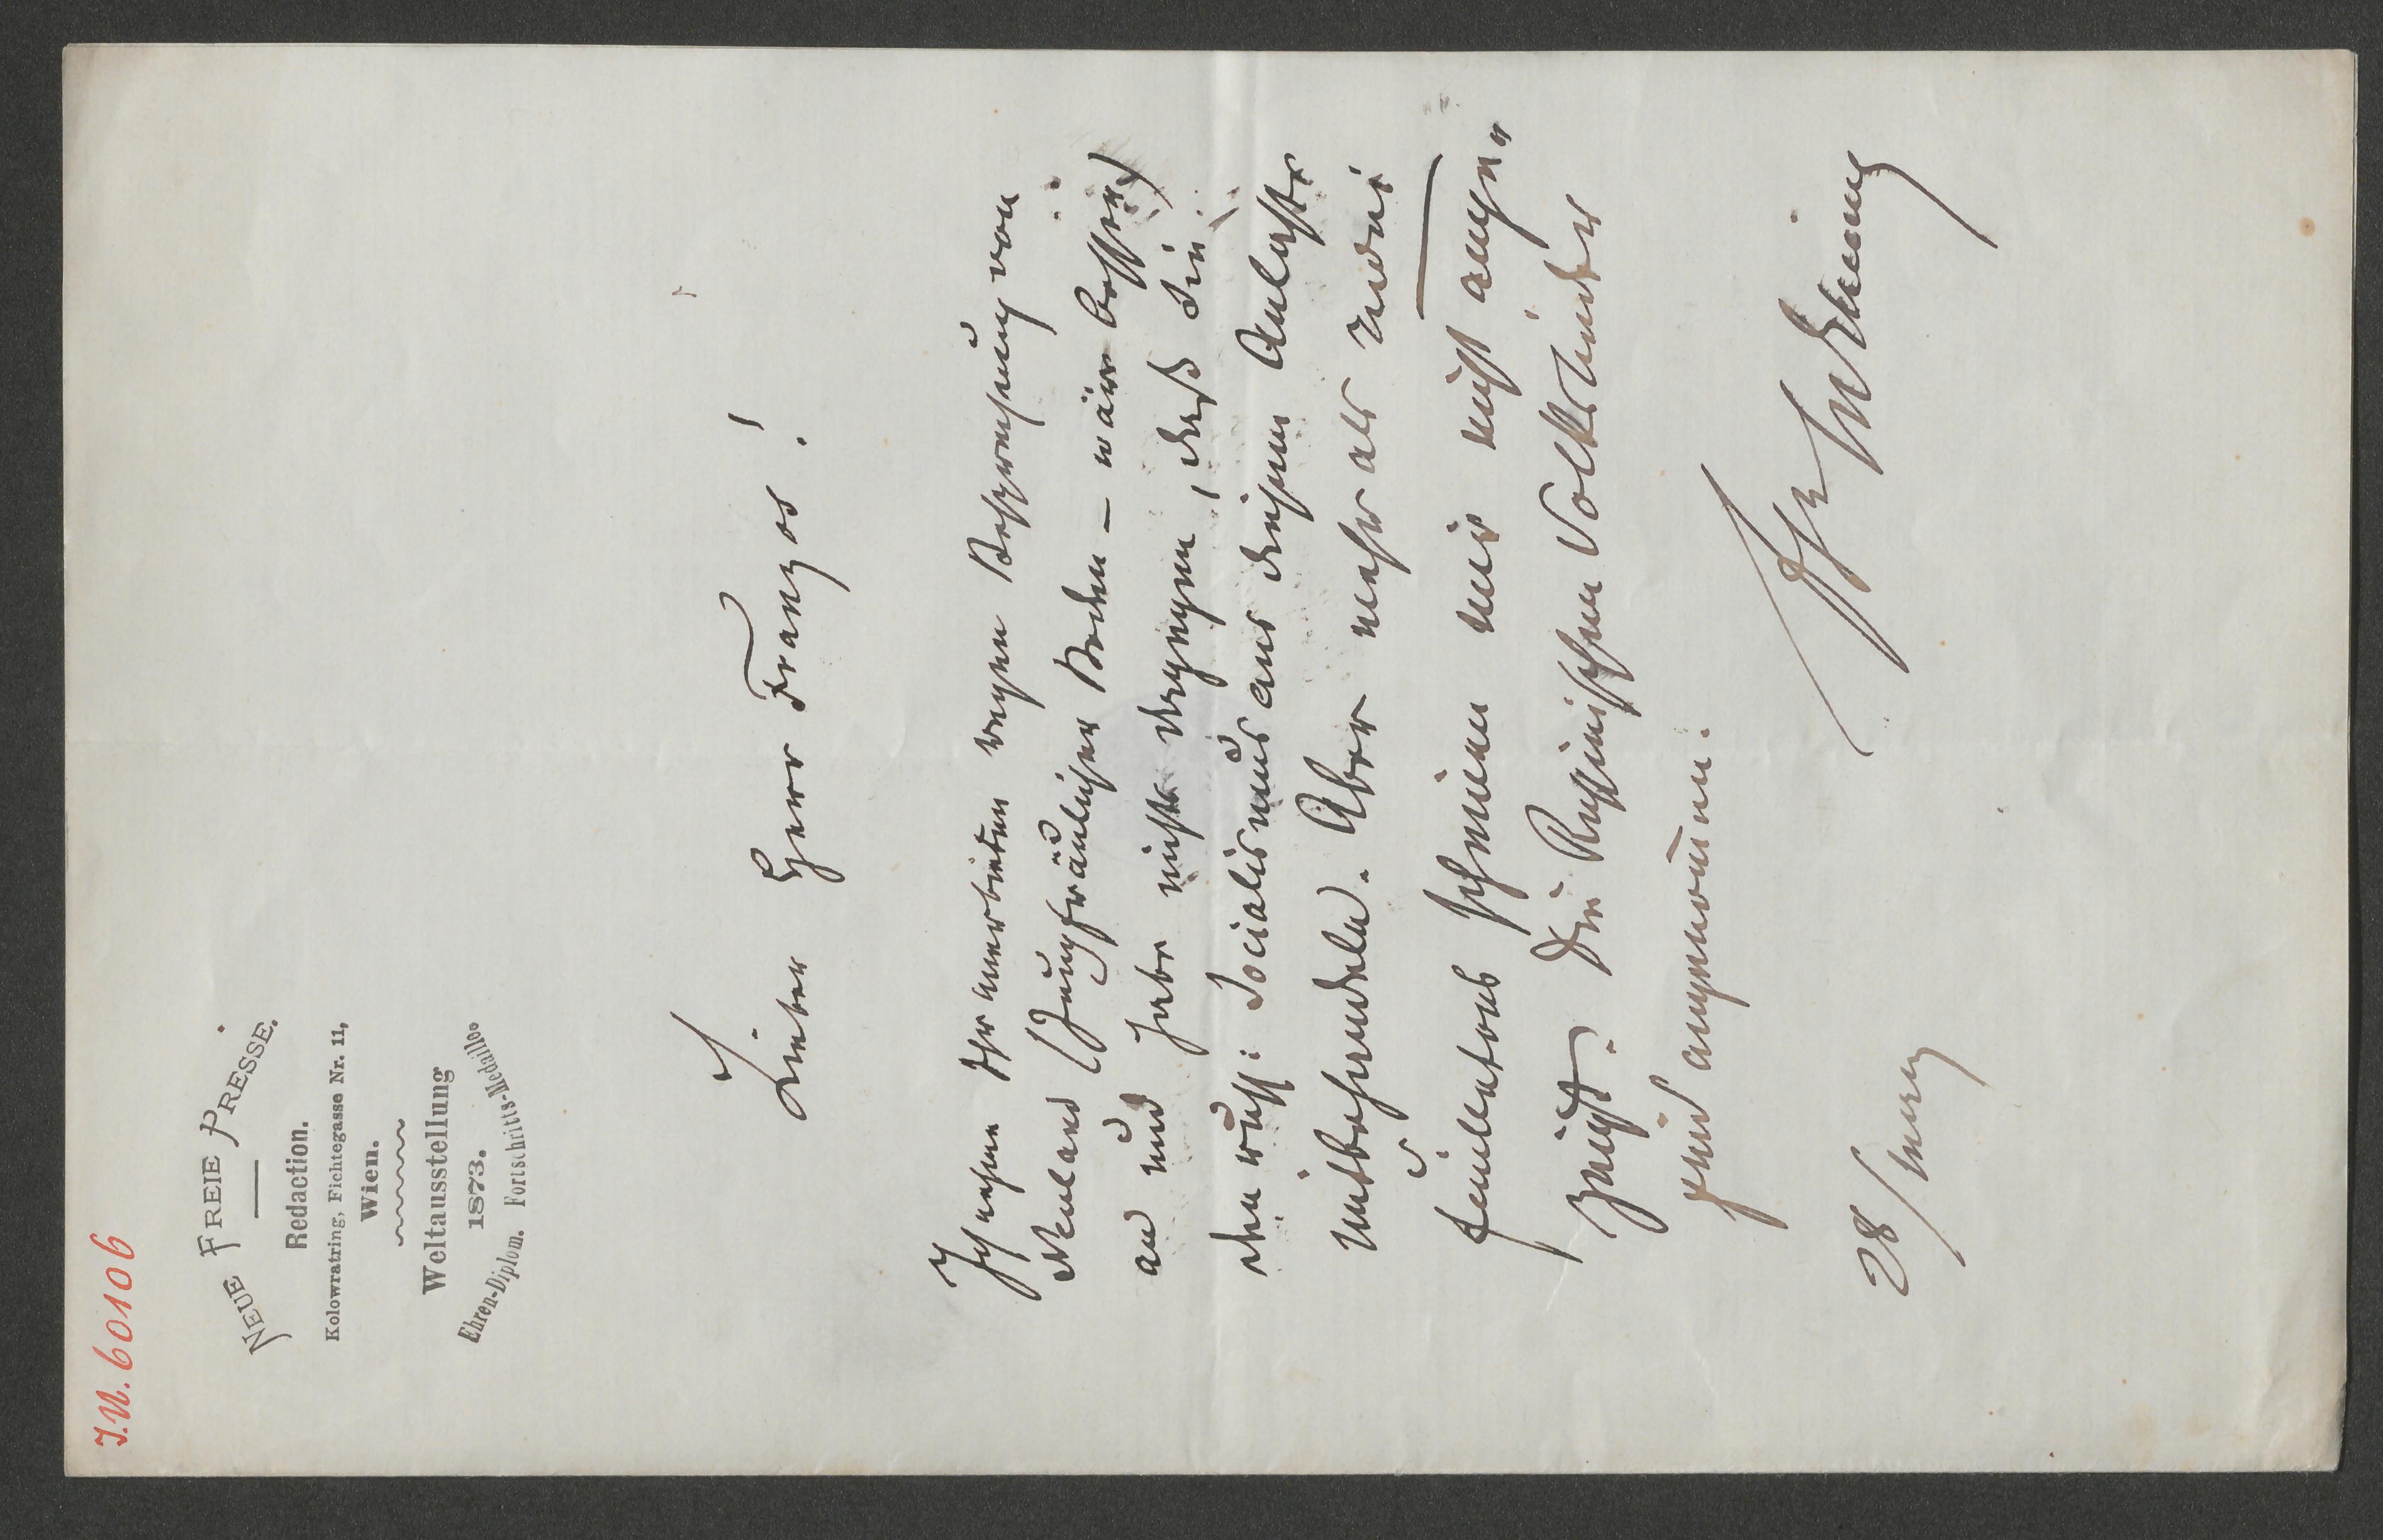 J.N. 60106
NEUE FREIE PRESSE.
Redaction.
Kolowratring, Fichtegasse Nr. 11,
Wien.
Weltausstellung
1873.
Ehren-Diplom. Fortschritts-Medaille
Lieber Herr Franzos!
Ich nehme Ihr anerbieten wegen Besprechung von
Neuland (Jungfräulicher Boden – wäre besser)
an und habe nichts dagegen, daß Sie
den russ: Socialismus aus diesem Anlasse
mitbehandeln. Aber mehr als zwei
Feuilletons scheinen mir nicht ange-
zeigt. Die Ruthenischen Volkslieder
sind angenommen.
Ihr
28/